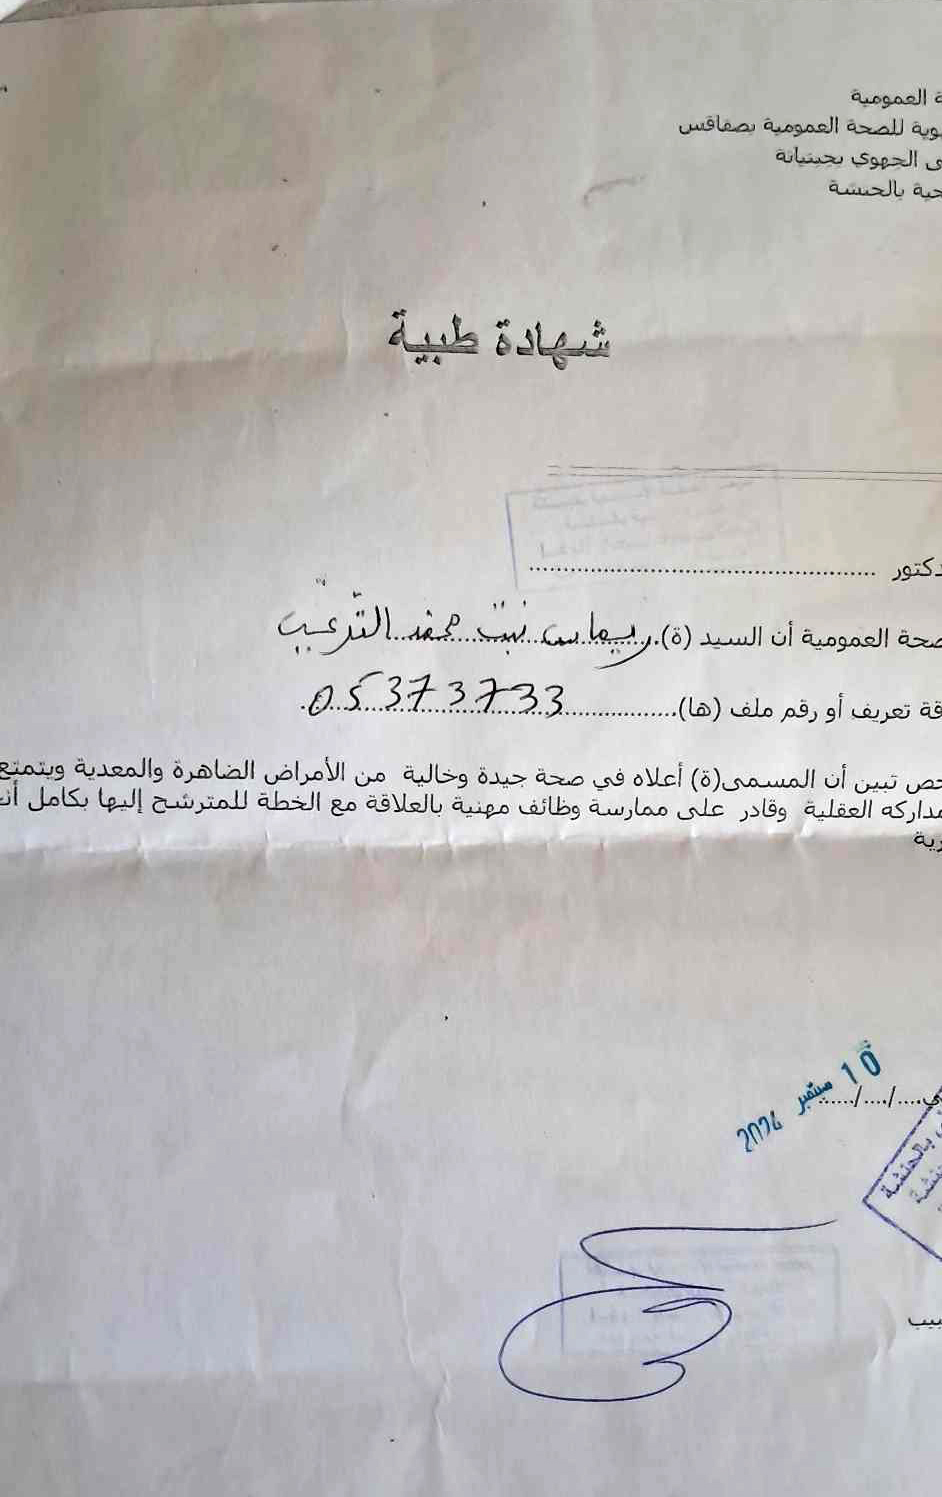 ة العمومية
وية للصحة العمومية بصفاقس
ى الجهوي بجبنيانة
حية بالحنشة
شهادة طبية
دكتور ....................................................
صحة العمومية أن السيد (ة).ريماس بنت محمد الترغيب
قة تعريف أو رقم ملف (ها)....................05373733
حص تبين أن المسمى(ة) أعلاه في صحة جيدة وخالية من الأمراض الضاهرة والمعدية ويتمتع
مداركه العقلية وقادر على ممارسة وظائف مهنية بالعلاقة مع الخطة للمترشح إليها بكامل أنح
رية
ي..../..../.....
10 سبتمبر 2024
بالحنشة
بيب